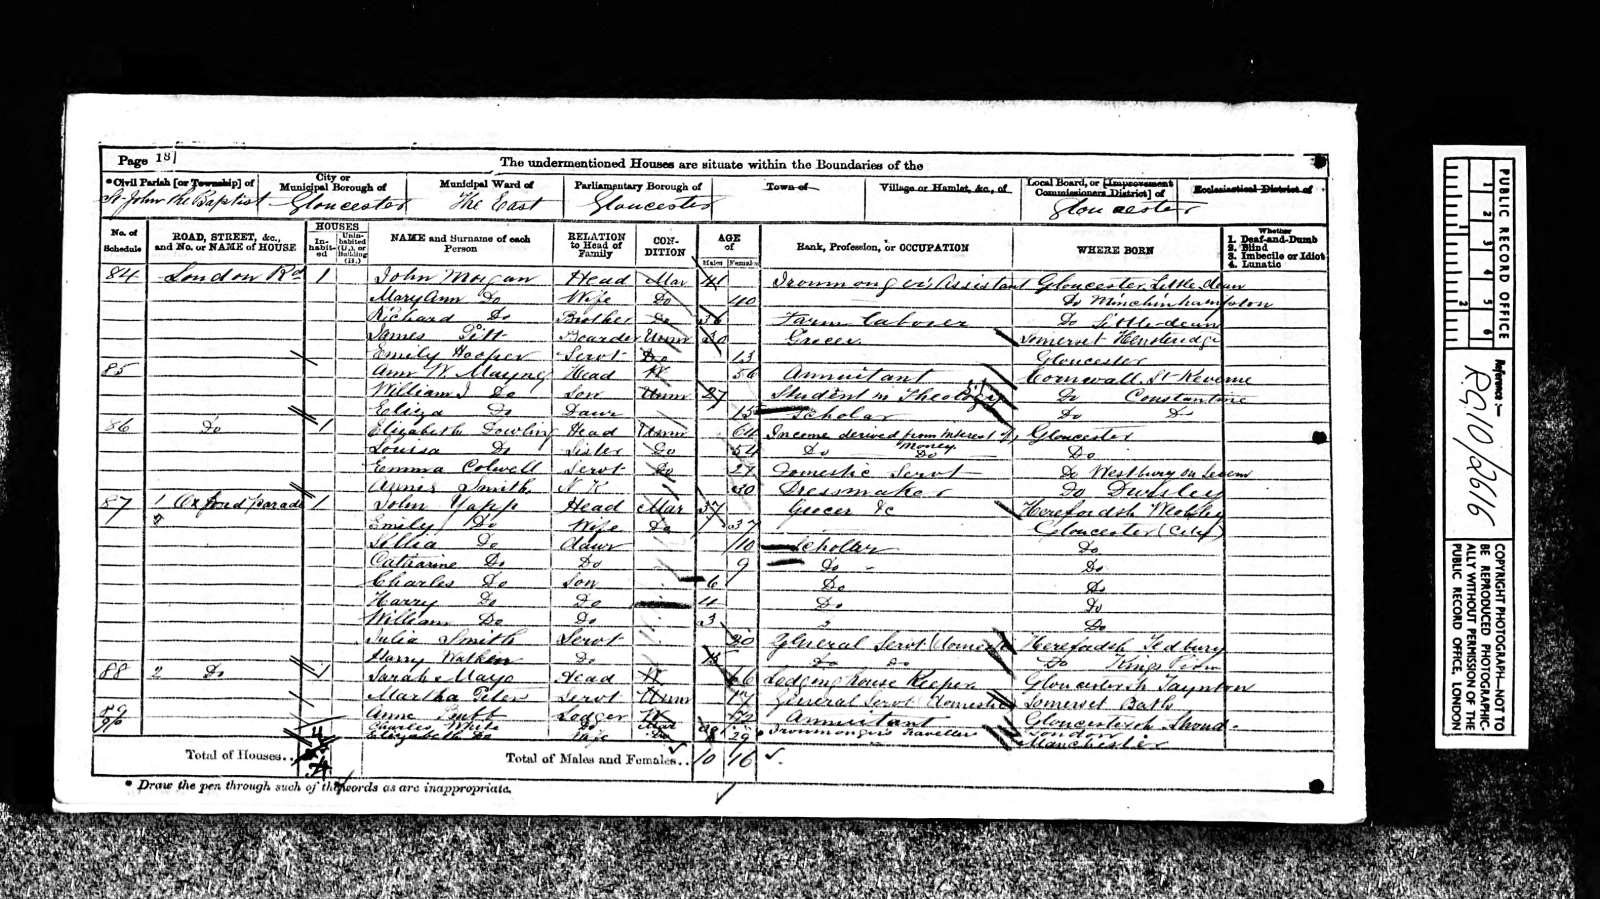 Page 18]
The undermentioned Houses are situate within the Boundaries of the
*Civil Parish [or Township] of
City or Municipal Borough of
Municipal Ward of
Parliamentary Borough of
Town of
Village or Hamlet, &c., of
Local Board, or [Improvement Commissioners District] of
Ecclesiastical District of
St John the Baptist Gloucester The East Gloucester Gloucester
No. of Schedule
ROAD, STREET, &c., and No. or NAME of HOUSE
HOUSES
In-habit-ed
Unin-habited (U.), or Building (B.)
NAME and Surname of each Person
RELATION to Head of Family
CON-DITION
AGE of
Males Females
Rank, Profession, or OCCUPATION
WHERE BORN
Whether
1. Deaf-and-Dumb
2. Blind
3. Imbecile or Idiot
4. Lunatic
84 London Rd 1 John Morgan Head Mar 41 Ironmonger's Assistant Gloucester Little dean
Mary Ann Do Wife Do 40 Do Minchinhampton
Richard Do Brother Do 36 Farm Labourer Do Little-dean
James Pitt Boarder Unm 30 Grocer Somerset Henstridge
Emily Hooper Servt Do 13 Gloucester
85 Ann W Head W 56 Annuitant Cornwall St Keverne
William J Do Son Unm 27 Student in Theology Do Constantine
Eliza Do Daur 15 Scholar Do Do
86 Do 1 Elizabeth Dowling Head Unm 64 Income derived from Interest of Money Gloucester
Louisa Do Sister Do 54 Do Do Do
Emma Colwell Servt Do 27 Domestic Servt Do Westbury on Severn
Annie Smith N K 30 Dressmaker Do Dursley
87 1 Oxford parade 1 John Yapp Head Mar 37 Grocer &c Herefordsh
Emily Do Wife Do 37 Gloucester (City)
Do daur 10 Scholar Do
Catharine Do Do 9 Do Do
Charles Do Son 6 Do Do
Harry Do Do 4 Do Do
William Do Do 3 Do
Julia Smith Servt 20 General Servt (domestic Herefordsh Tedbury
Harry Watkins Do Do Do Do Kings
88 2 Do 1 Sarah Mayo Head W 66 Lodging house Keeper Gloucestersh Taynton
Martha Peters Servt Unm 17 General Servt (domestic Somerset Bath
89 Anne Lodger W 72 Annuitant Gloucestersh Stroud
90 Charles White Do Mar Ironmongers Traveller London
Elizabeth Do Wife Do 29 Manchester
Total of Houses..
Total of Males and Females.. 10 16
* Draw the pen through such of the words as are inappropriate.
PUBLIC RECORD OFFICE
1 2 3 4 5 6
1 2
Reference :—
RG10/2616
COPYRIGHT PHOTOGRAPH—NOT TO BE REPRODUCED PHOTOGRAPHIC-ALLY WITHOUT PERMISSION OF THE PUBLIC RECORD OFFICE, LONDON